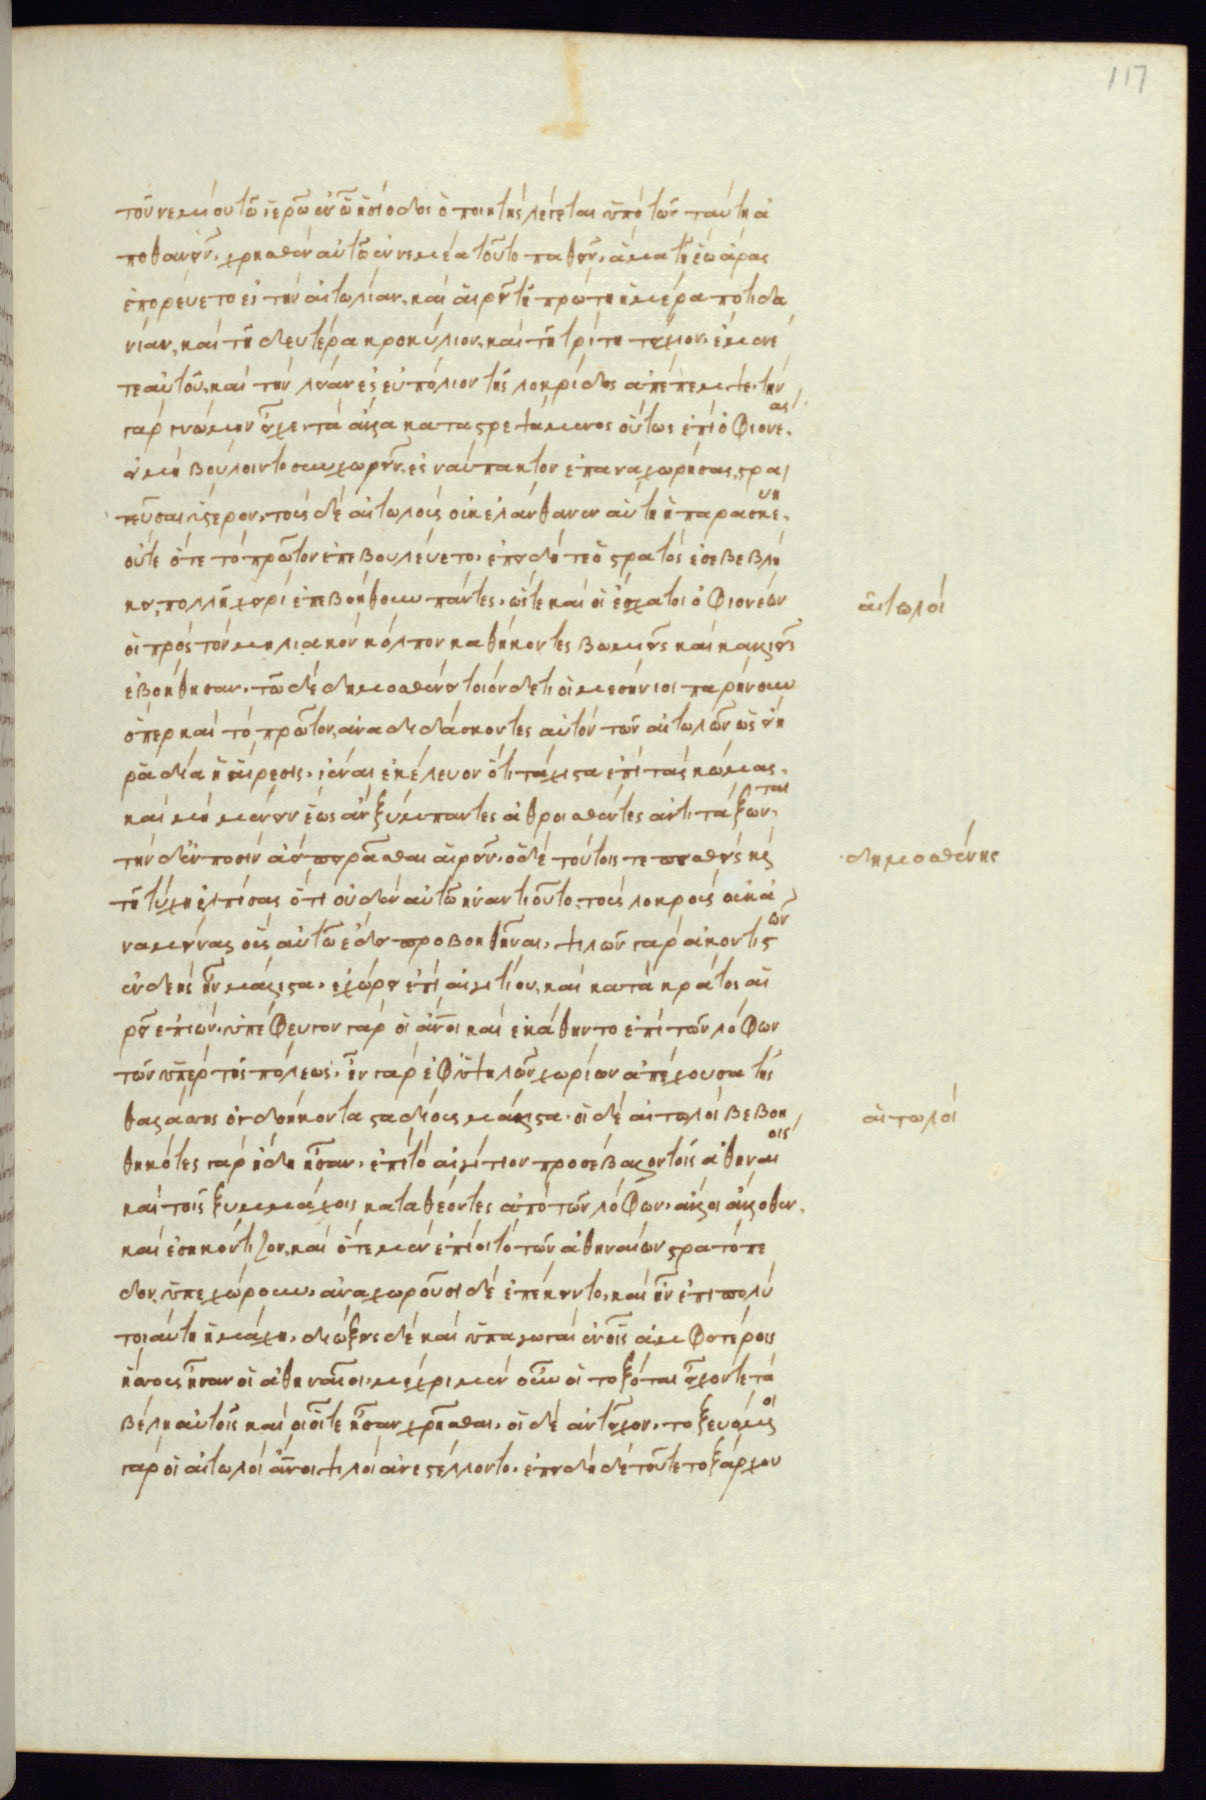 117
τοῦ νεμείου τῶ ἱερῶ ἐν ῶ ἡσίοδος ὁ ποιητὴς λέγεται ὑπὸ τῶν ταύτη ἀ
ποθανεῖν, χρησθὲν αὐτῶ ἐν νεμέα τοῦτο παθεῖν, ἅμα τῆ ἕω ἄρας
ἐπορεύετο ἐς τὴν αἰτωλίαν, καὶ αἱρεῖ τῆ πρώτη ἡμέρα ποτιδα
νίαν, καὶ τῆ δευτέρα κροκύλιον, καὶ τῆ τρίτη τείχιον, ἔμενέ
τε αὐτοῦ, καὶ τὴν λείαν ἐς εὐπόλιον τῆς λοκρίδος ἀπέπεμψε, τὴν
γὰρ γνώμην εἶχε, τὰ ἄλλα καταστρεψάμενος οὕτως ἐπὶ ὀφιονέας
εἰ μὴ βούλοιντο συγχωρεῖν, ἐς ναύπακτον ἐπαναχωρήσας, στρα
τεῦσαι ὕστερον, τοὺς δὲ αἰτωλοὺς οὐκ ἐλάνθανεν αὕτη ἡ παρασκευὴ
οὔτε ὅτε τὸ πρῶτον ἐπεβουλεύετο, ἐπειδή τε ὁ στρατὸς ἐσεβεβλή
κει, πολλῆ χειρὶ ἐπεβοήθουν πάντες, ὥστε καὶ οἱ ἔσχατοι ὀφιονέων
οἱ πρὸς τὸν μηλιακὸν κόλπον καθήκοντες βωμιεῖς καὶ καλλιεῖς
ἐβοήθησαν, τῶ δὲ δημοσθένει τοιόνδε τι οἱ μεσήνιοι παρήνουν
ὅπερ καὶ τὸ πρῶτον, ἀναδιδάσκοντες αὐτὸν τῶν αἰτωλῶν ὡς εἴη
ραδία ἡ αἵρεσις, ἰέναι ἐκέλευον ὅτι τάχιστα ἐπὶ τὰς κώμας,
καὶ μὴ μένειν ἕως ἂν ξύμπαντες ἀθροισθέντες ἀντιτάξωνται
τὴν δ' ἐν ποσὶν ἀεὶ πειρᾶσθαι αἱρεῖν, ὁ δὲ τούτοις τε πεισθεὶς καὶ
τῆ τύχη ἐλπίσας ὅτι οὐδὲν αὐτῶ ἠναντιοῦτο, τοὺς λοκροὺς οὐκ ἀ
ναμείνας οὓς αὐτῶ ἔδει προβοηθῆναι, ψιλῶν γὰρ ἀκοντιστῶν
ἐνδεὴς ἦν μάλιστα, ἐχώρει ἐπὶ αἰγιτίου, καὶ κατὰ κράτος αἱ
ρεῖ ἐπιών, ὑπέφευγον γὰρ οἱ ἄνοι καὶ ἐκάθηντο ἐπὶ τῶν λόφων
τῶν ὑπὲρ τῆς πόλεως, ἦν γὰρ ἐφ' ὑψηλῶν χωρίων ἀπέχουσα τῆς
θαλάσσης ὀγδοήκοντα σταδίους μάλιστα. οἱ δὲ αἰτωλοὶ βεβοη
θηκότες γὰρ ἤδη ἦσαν, ἐπὶ τὸ αἰγίτιον προσέβαλλον τοῖς ἀθηναίοις
καὶ τοῖς ξυμμάχοις καταθέοντες ἀπὸ τῶν λόφων, ἄλλοι ἄλλοθεν,
καὶ ἐσηκόντιζον, καὶ ὅτε μὲν ἐπίοι τὸ τῶν ἀθηναίων στρατόπε
δον, ὑπεχώρουν, ἀναχωροῦσι δὲ ἐπέκειντο, καὶ ἦν ἐπιπολὺ
τοιαύτη ἡ μάχη, διώξεις δὲ καὶ ὑπαγωγαὶ ἐν οἷς ἀμφοτέροις
ἥσσους ἦσαν οἱ ἀθηναῖοι, μέχρι μὲν οὖν οἱ τοξόται εἶχόν τε τὰ
βέλη αὐτοῖς καὶ οἷοί τε ἦσαν χρῆσθαι, οἱ δὲ ἀντεῖχον, τοξευόμενοι
γὰρ οἱ αἰτωλοὶ ἄνοι ψιλοὶ ἀνεστέλλοντο, ἐπειδὴ δὲ τοῦ τε τοξάρχου
αἰτωλοί
δημοσθένης
αἰτωλοί